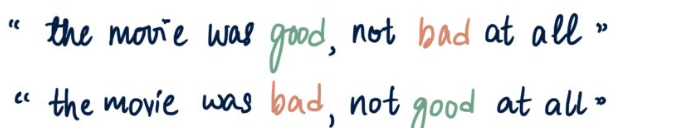 “ the movie was good, not bad at all ”
“ the movie was bad, not good at all ”